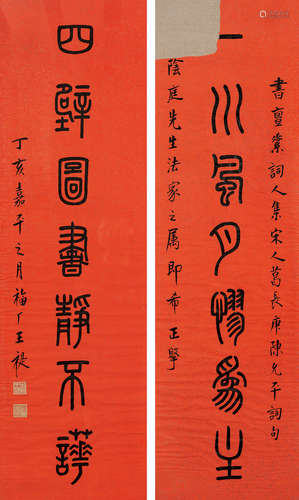 書亶詞人集宋人葛長庚陳允平詞句
一川風月爲主
蔭庭先生法家之属即希 正擘
四壁圖書靜不譁
丁亥嘉平之月福厂王禔